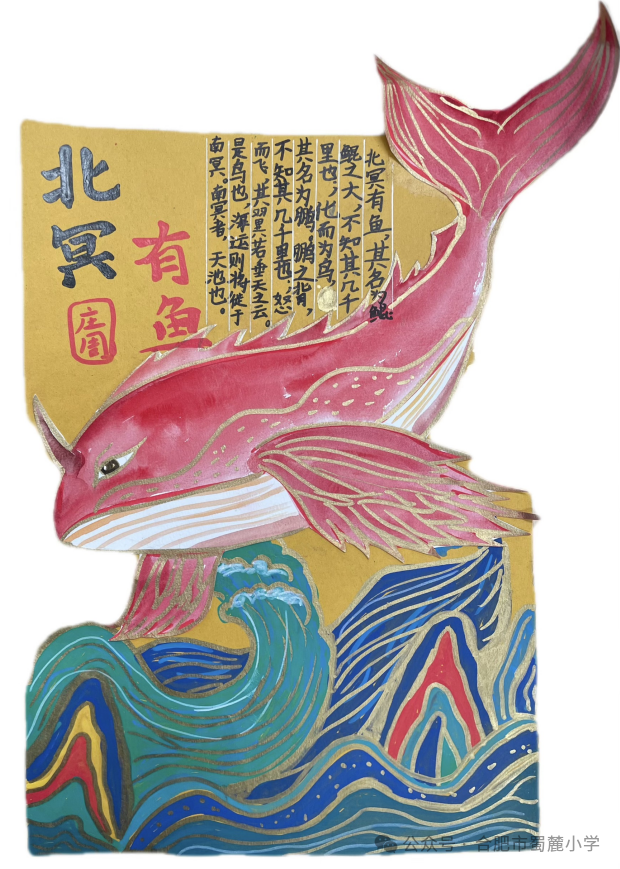 北冥
有鱼
庄周
北冥有鱼,其名为鲲。
鲲之大,不知其几千
里也,化而为鸟,
其名为鹏。鹏之背,
不知其几千里也,怒
而飞,其翼若垂天之云。
是鸟也,海运则将徙于
南冥。南冥者,天池也。
公众号·合肥市蜀麓小学